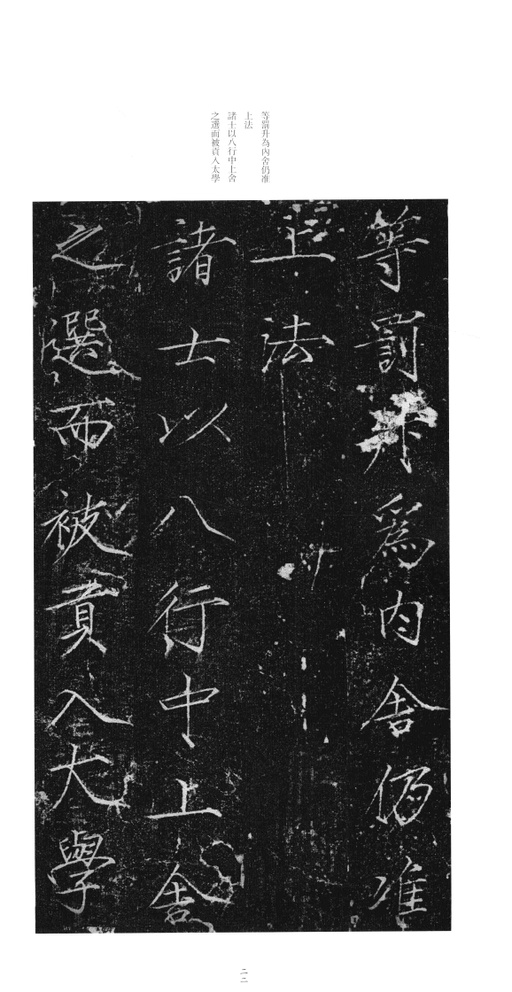 等罰升為內舍仍准
上法
諸士以八行中上舍
之選而被貢入太學
等罰升爲内舍仍准
上法
諸士以八行中上舍
之選而被貢入大學
二二